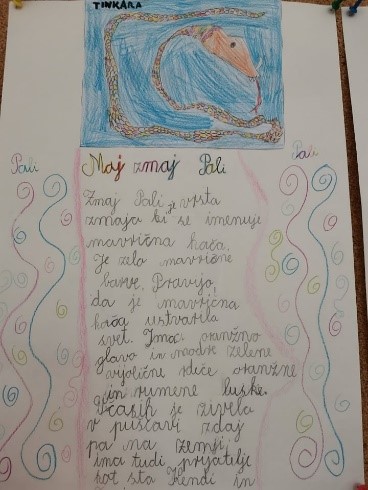 TINKARA
Pali
Pali
Moj zmaj Pali
Zmaj Pali je vrsta
zmaja ki se imenuje
mavrična kača.
Je zelo mavrične
barve. Pravijo,
da je mavrična
kača ustvarila
svet. Ima oranžno
glavo in modre zelene
vijolične rdeče oranžne
in rumene luske.
Včasih je živela
v puščavi zdaj
pa na zemlji,
ima tudi prijatelje
kot sta Kendi in